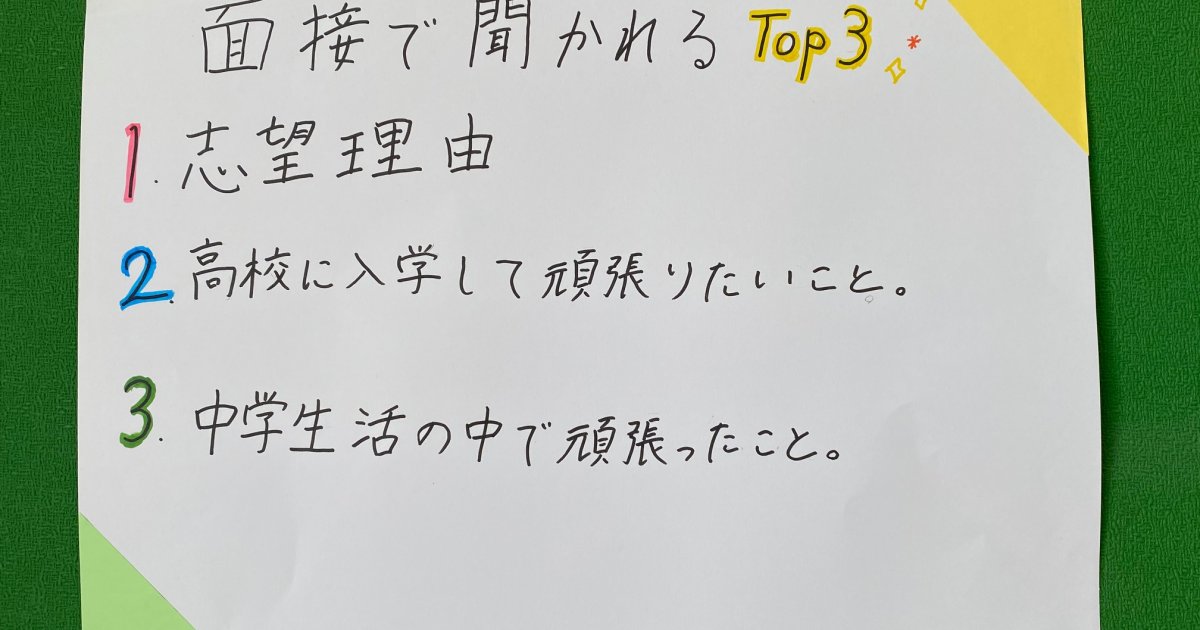 面接で聞かれるTop3
1.志望理由
2.高校に入学して頑張りたいこと。
3.中学生活の中で頑張ったこと。